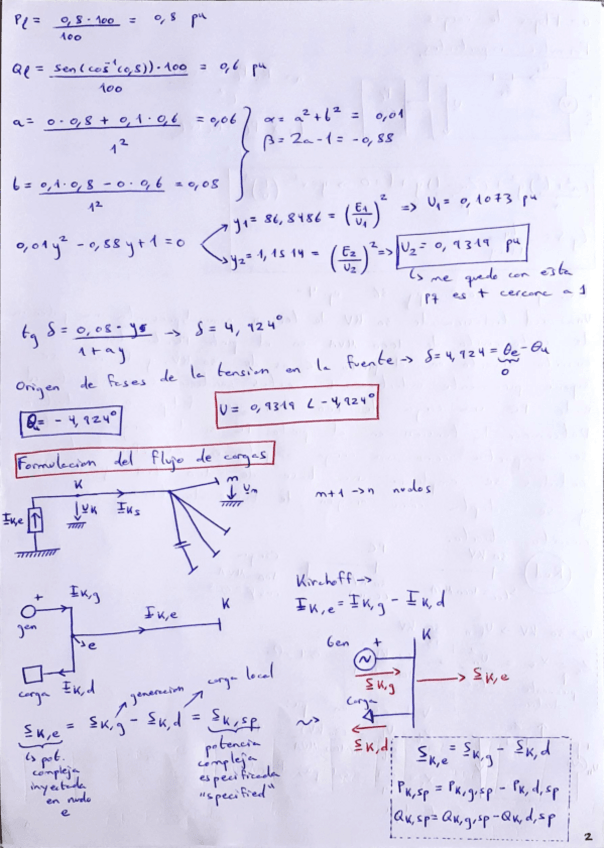 Pl = 0,8 · 100 / 100 = 0,8 pu
Ql = sen(cos⁻¹(0,8)) · 100 / 100 = 0,6 pu
a = 0 · 0,8 + 0,1 · 0,6 / 1² = 0,06
α = a² + b² = 0,01
β = 2a - 1 = -0,88
b = 0,1 · 0,8 - 0 · 0,6 / 1² = 0,08
0,01 y² - 0,88 y + 1 = 0
y₁ = 86,8486 = (E₁/U₁)² => U₁ = 0,1073 pu
y₂ = 1,1514 = (E₂/U₂)² => U₂ = 0,9319 pu
↳ me quedo con esta
pq es + cercana a 1
tg δ = 0,08 · y / 1 + ay → δ = 4,924°
Origen de fases de la tension en la fuente → δ = 4,924 = θe - θu
0
θ = -4,924°
U = 0,9319 ∠ -4,924°
Formulacion del flujo de cargas
K
m
I K,e
U K
I Ks
U m
n+1 → n nudos
Kirchoff →
I K,e = I K,g - I K,d
+
I K,g
gen
I K,e
K
e
carga
I K,d
Gen
+
K
S K,g
S K,e
Carga
S K,d
generacion
carga local
S K,e = S K,g - S K,d = S K,sp
↳ pot.
compleja
inyectada
en nudo
e
potencia
compleja
especificada
"specified"
S K,e = S K,g - S K,d
P K,sp = P K,g,sp - P K,d,sp
Q K,sp = Q K,g,sp - Q K,d,sp
2